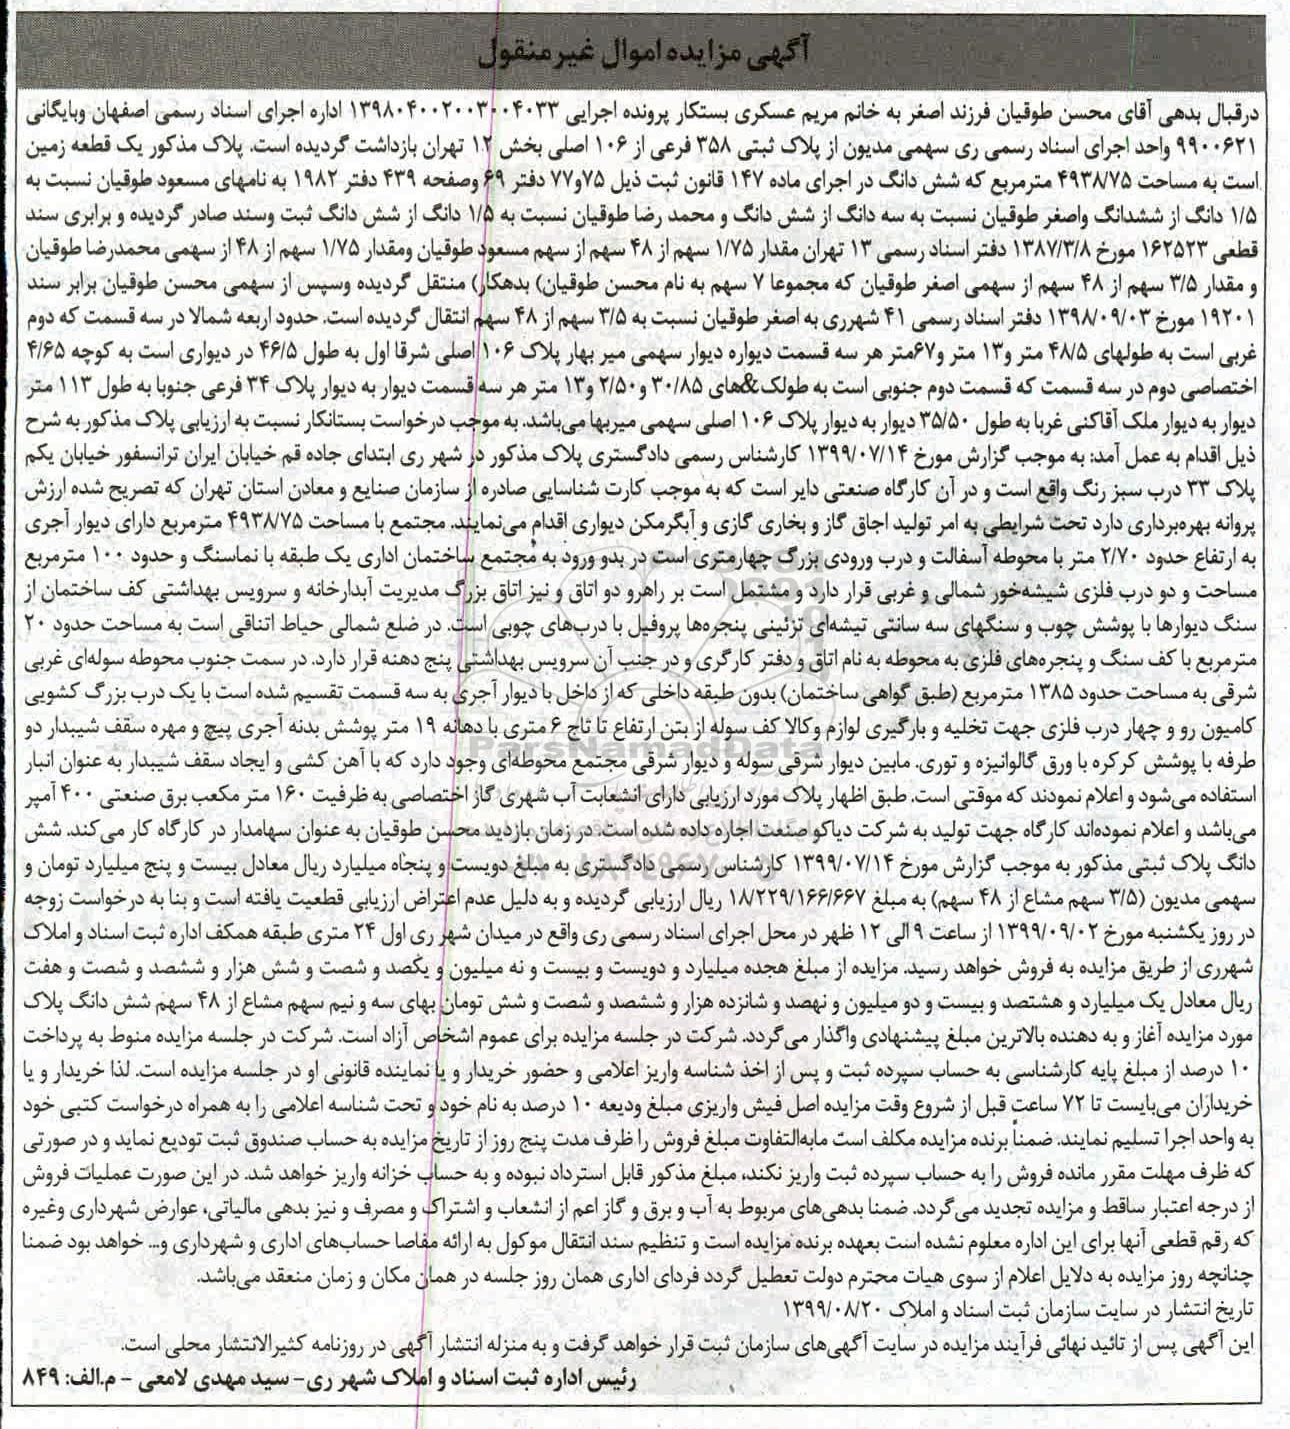 آگهی مزایده اموال غیرمنقول
درقبال بدهی آقای محسن طوقیان فرزند اصغر به خانم مریم عسکری بستکار پرونده اجرایی ۱۳۹۸۰۴۰۰۲۰۰۳۰۰۴۰۳۳ اداره اجرای اسناد رسمی اصفهان وبایگانی
۹۹۰۰۶۲۱ واحد اجرای اسناد رسمی ری سهمی مدیون از پلاک ثبتی ۳۵۸ فرعی از ۱۰۶ اصلی بخش ۱۲ تهران بازداشت گردیده است. پلاک مذکور یک قطعه زمین
است به مساحت ۴۹۳۸/۷۵ مترمربع که شش دانگ در اجرای ماده ۱۴۷ قانون ثبت ذیل ۷۵و۷۷ دفتر ۶۹ وصفحه ۴۳۹ دفتر ۱۹۸۲ به نامهای مسعود طوقیان نسبت به
۱/۵ دانگ از ششدانگ واصغر طوقیان نسبت به سه دانگ از شش دانگ و محمد رضا طوقیان نسبت به ۱/۵ دانگ از شش دانگ ثبت وسند صادر گردیده و برابری سند
قطعی ۱۶۲۵۲۳ مورخ ۱۳۸۷/۳/۸ دفتر اسناد رسمی ۱۳ تهران مقدار ۱/۷۵ سهم از ۴۸ سهم از سهم مسعود طوقیان ومقدار ۱/۷۵ سهم از ۴۸ از سهمی محمدرضا طوقیان
و مقدار ۳/۵ سهم از ۴۸ سهم از سهمی اصغر طوقیان که مجموعا ۷ سهم به نام محسن طوقیان) بدهکار) منتقل گردیده وسپس از سهمی محسن طوقیان برابر سند
۱۹۲۰۱ مورخ ۱۳۹۸/۰۹/۰۳ دفتر اسناد رسمی ۴۱ شهرری به اصغر طوقیان نسبت به ۳/۵ سهم از ۴۸ سهم انتقال گردیده است. حدود اربعه شمالا در سه قسمت که دوم
غربی است به طولهای ۴۸/۵ متر و۱۳ متر و۶۷متر هر سه قسمت دیواره دیوار سهمی میر بهار پلاک ۱۰۶ اصلی شرقا اول به طول ۴۶/۵ در دیواری است به کوچه ۴/۶۵
اختصاصی دوم در سه قسمت که قسمت دوم جنوبی است به طولک&های ۳۰/۸۵ و۲/۵۰ و۱۳ متر هر سه قسمت دیوار به دیوار پلاک ۳۴ فرعی جنوبا به طول ۱۱۳ متر
دیوار به دیوار ملک آقاکنی غربا به طول ۳۵/۵۰ دیوار به دیوار پلاک ۱۰۶ اصلی سهمی میربها می‌باشد. به موجب درخواست بستانکار نسبت به ارزیابی پلاک مذکور به شرح
ذیل اقدام به عمل آمد: به موجب گزارش مورخ ۱۳۹۹/۰۷/۱۴ کارشناس رسمی دادگستری پلاک مذکور در شهر ری ابتدای جاده قم خیابان ایران ترانسفور خیابان یکم
پلاک ۳۳ درب سبز رنگ واقع است و در آن کارگاه صنعتی دایر است که به موجب کارت شناسایی صادره از سازمان صنایع و معادن استان تهران که تصریح شده ارزش
پروانه بهره‌برداری دارد تحت شرایطی به امر تولید اجاق گاز و بخاری گازی و آبگرمکن دیواری اقدام می‌نمایند. مجتمع با مساحت ۴۹۳۸/۷۵ مترمربع دارای دیوار آجری
به ارتفاع حدود ۲/۷۰ متر با محوطه آسفالت و درب ورودی بزرگ چهارمتری است در بدو ورود به مجتمع ساختمان اداری یک طبقه با نماسنگ و حدود ۱۰۰ مترمربع
مساحت و دو درب فلزی شیشه‌خور شمالی و غربی قرار دارد و مشتمل است بر راهرو دو اتاق و نیز اتاق بزرگ مدیریت آبدارخانه و سرویس بهداشتی کف ساختمان از
سنگ دیوارها با پوشش چوب و سنگهای سه سانتی تیشه‌ای تزئینی پنجره‌ها پروفیل با درب‌های چوبی است. در ضلع شمالی حیاط اتناقی است به مساحت حدود ۲۰
مترمربع با کف سنگ و پنجره‌های فلزی به محوطه به نام اتاق و دفتر کارگری و در جنب آن سرویس بهداشتی پنج دهنه قرار دارد. در سمت جنوب محوطه سوله‌ای غربی
شرقی به مساحت حدود ۱۳۸۵ مترمربع (طبق گواهی ساختمان) بدون طبقه داخلی که از داخل با دیوار آجری به سه قسمت تقسیم شده است با یک درب بزرگ کشویی
کامیون رو و چهار درب فلزی جهت تخلیه و بارگیری لوازم وکالا کف سوله از بتن ارتفاع تا تاج ۶ متری با دهانه ۱۹ متر پوشش بدنه آجری پیچ و مهره سقف شیبدار دو
طرفه با پوشش کرکره با ورق گالوانیزه و توری. مابین دیوار شرقی سوله و دیوار شرقی مجتمع محوطه‌ای وجود دارد که با آهن کشی و ایجاد سقف شیبدار به عنوان انبار
استفاده می‌شود و اعلام نمودند که موقتی است. طبق اظهار پلاک مورد ارزیابی دارای انشعابت آب شهری گاز اختصاصی به ظرفیت ۱۶۰ متر مکعب برق صنعتی ۴۰۰ آمپر
می‌باشد و اعلام نموده‌اند کارگاه جهت تولید به شرکت دیاکو صنعت اجاره داده شده است. در زمان بازدید محسن طوقیان به عنوان سهامدار در کارگاه کار می‌کند. شش
دانگ پلاک ثبتی مذکور به موجب گزارش مورخ ۱۳۹۹/۰۷/۱۴ کارشناس رسمی دادگستری به مبلغ دویست و پنجاه میلیارد ریال معادل بیست و پنج میلیارد تومان و
سهمی مدیون (۳/۵ سهم مشاع از ۴۸ سهم) به مبلغ ۱۸/۲۲۹/۱۶۶/۶۶۷ ریال ارزیابی گردیده و به دلیل عدم اعتراض ارزیابی قطعیت یافته است و بنا به درخواست زوجه
در روز یکشنبه مورخ ۱۳۹۹/۰۹/۰۲ از ساعت ۹ الی ۱۲ ظهر در محل اجرای اسناد رسمی ری واقع در میدان شهر ری اول ۲۴ متری طبقه همکف اداره ثبت اسناد و املاک
شهرری از طریق مزایده به فروش خواهد رسید. مزایده از مبلغ هجده میلیارد و دویست و بیست و نه میلیون و یکصد و شصت و شش هزار و ششصد و شصت و هفت
ریال معادل یک میلیارد و هشتصد و بیست و دو میلیون و نهصد و شانزده هزار و ششصد و شصت و شش تومان بهای سه و نیم سهم مشاع از ۴۸ سهم شش دانگ پلاک
مورد مزایده آغاز و به دهنده بالاترین مبلغ پیشنهادی واگذار می‌گردد. شرکت در جلسه مزایده برای عموم اشخاص آزاد است. شرکت در جلسه مزایده منوط به پرداخت
۱۰ درصد از مبلغ پایه کارشناسی به حساب سپرده ثبت و پس از اخذ شناسه واریز اعلامی و حضور خریدار و یا نماینده قانونی او در جلسه مزایده است. لذا خریدار و یا
خریداران می‌بایست تا ۷۲ ساعت قبل از شروع وقت مزایده اصل فیش واریزی مبلغ ودیعه ۱۰ درصد به نام خود و تحت شناسه اعلامی را به همراه درخواست کتبی خود
به واحد اجرا تسلیم نمایند. ضمناً برنده مزایده مکلف است مابه‌التفاوت مبلغ فروش را ظرف مدت پنج روز از تاریخ مزایده به حساب صندوق ثبت تودیع نماید و در صورتی
که ظرف مهلت مقرر مانده فروش را به حساب سپرده ثبت واریز نکند، مبلغ مذکور قابل استرداد نبوده و به حساب خزانه واریز خواهد شد. در این صورت عملیات فروش
از درجه اعتبار ساقط و مزایده تجدید می‌گردد. ضمنا بدهی‌های مربوط به آب و برق و گاز اعم از انشعاب و اشتراک و مصرف و نیز بدهی مالیاتی، عوارض شهرداری وغیره
که رقم قطعی آنها برای این اداره معلوم نشده است بعهده برنده مزایده است و تنظیم سند انتقال موکول به ارائه مفاصا حساب‌های اداری و شهرداری و... خواهد بود ضمنا
چنانچه روز مزایده به دلایل اعلام از سوی هیات محترم دولت تعطیل گردد فردای اداری همان روز جلسه در همان مکان و زمان منعقد می‌باشد.
تاریخ انتشار در سایت سازمان ثبت اسناد و املاک ۱۳۹۹/۰۸/۲۰
این آگهی پس از تائید نهائی فرآیند مزایده در سایت آگهی‌های سازمان ثبت قرار خواهد گرفت و به منزله انتشار آگهی در روزنامه کثیرالانتشار محلی است.
رئیس اداره ثبت اسناد و املاک شهر ری- سید مهدی لامعی - م.الف: ۸۴۹
ParsNamadData